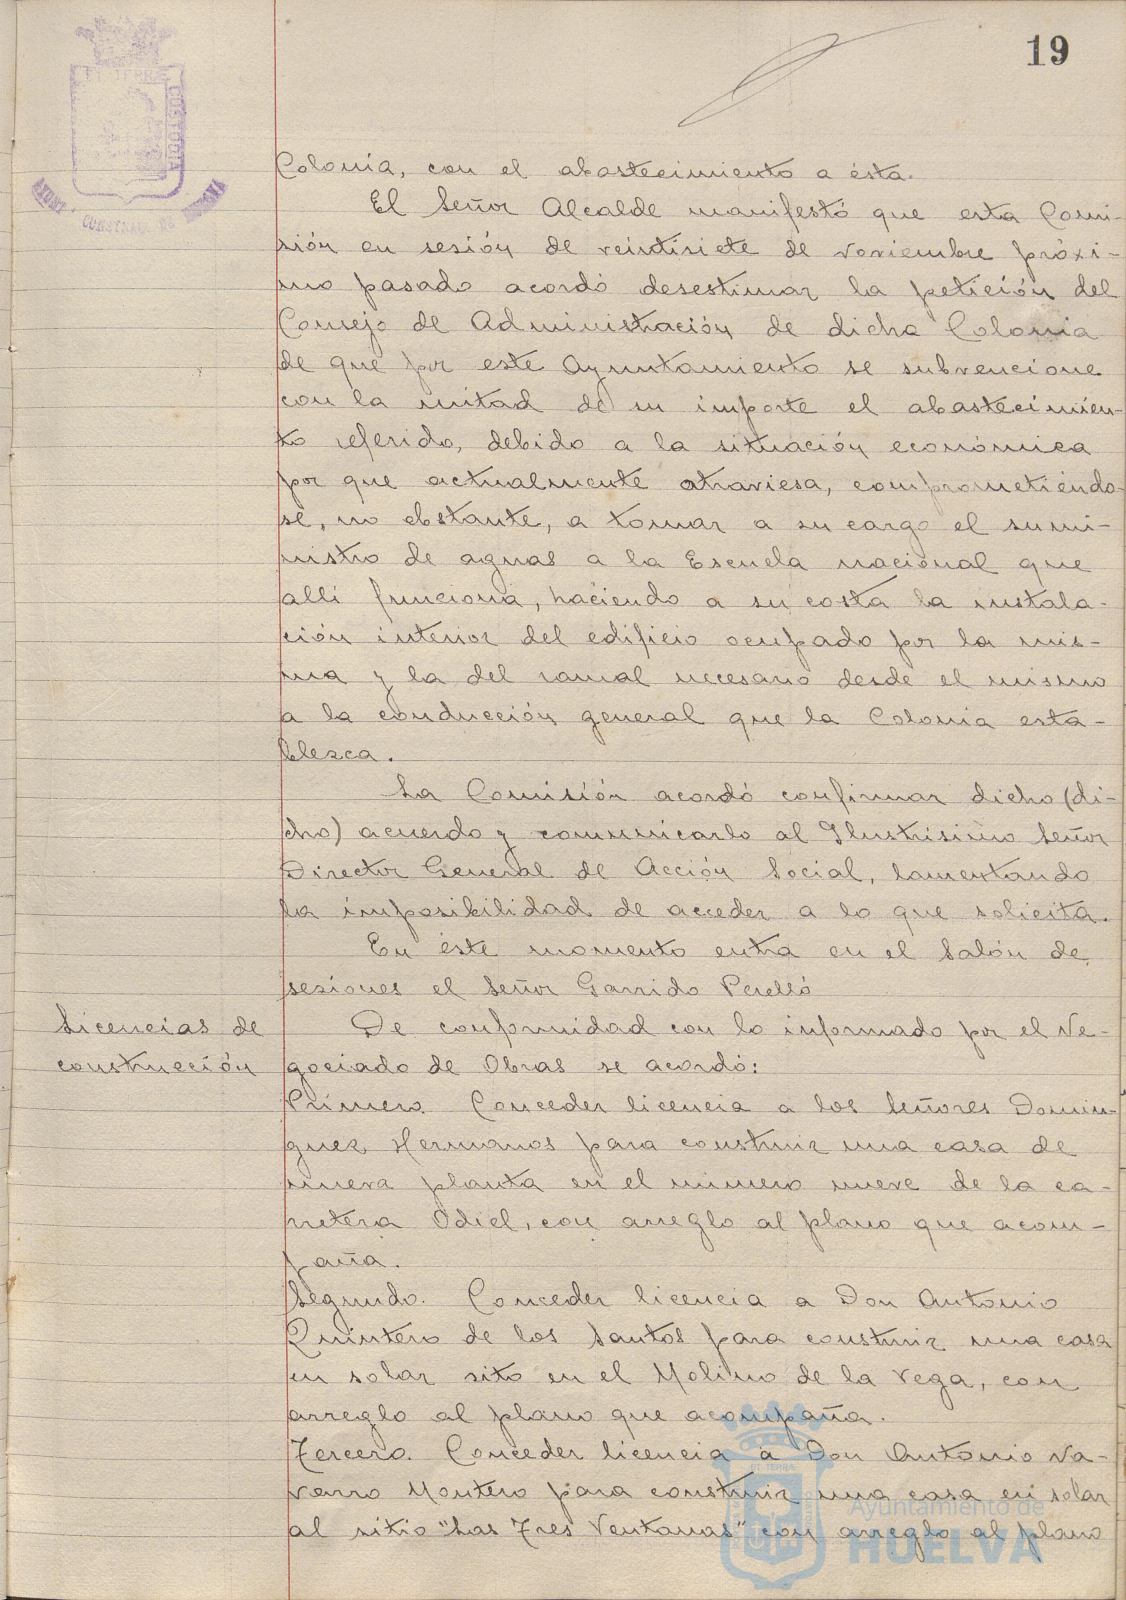 19
ET TERRÆ
CUSTODIA
Colonia, con el abastecimiento a ésta.
El Señor Alcalde manifestó que esta Comi-
sión en sesión de veintisiete de noviembre próxi-
mo pasado acordó desestimar la petición del
Consejo de Administración de dicha Colonia
de que por este Ayuntamiento se subvencione
con la mitad de su importe el abastecimien-
to referido, debido a la situación económica
por que actualmente atraviesa, comprometiéndo-
se, no obstante, a tomar a su cargo el sumi-
nistro de aguas a la Escuela nacional que
allí funciona, haciendo a su costa la instala-
ción interior del edificio ocupado por la mis-
ma y la del ramal necesario desde el mismo
a la conducción general que la Colonia esta-
blezca.
La Comisión acordó confirmar dicho (di-
cho) acuerdo y comunicarlo al Ilustrísimo Señor
Director General de Acción Social, lamentando
la imposibilidad de acceder a lo que solicita.
En éste momento entra en el Salón de
sesiones el Señor Garrido Perelló
Licencias de
construcción
De conformidad con lo informado por el Ne-
gociado de Obras se acordó:
Primero. Conceder licencia a los Señores Domin-
guez Hermanos para construir una casa de
nueva planta en el número nueve de la ca-
rretera Odiel, con arreglo al plano que acom-
paña.
Segundo. Conceder licencia a Don Antonio
Quintero de los Santos para construir una casa
en solar sito en el Molino de la Vega, con
arreglo al plano que acompaña.
Tercero. Conceder licencia a Don Antonio Na-
varro Montero para construir una casa en solar
al sitio "Las Tres Ventanas" con arreglo al plano
Ayuntamiento de
HUELVA